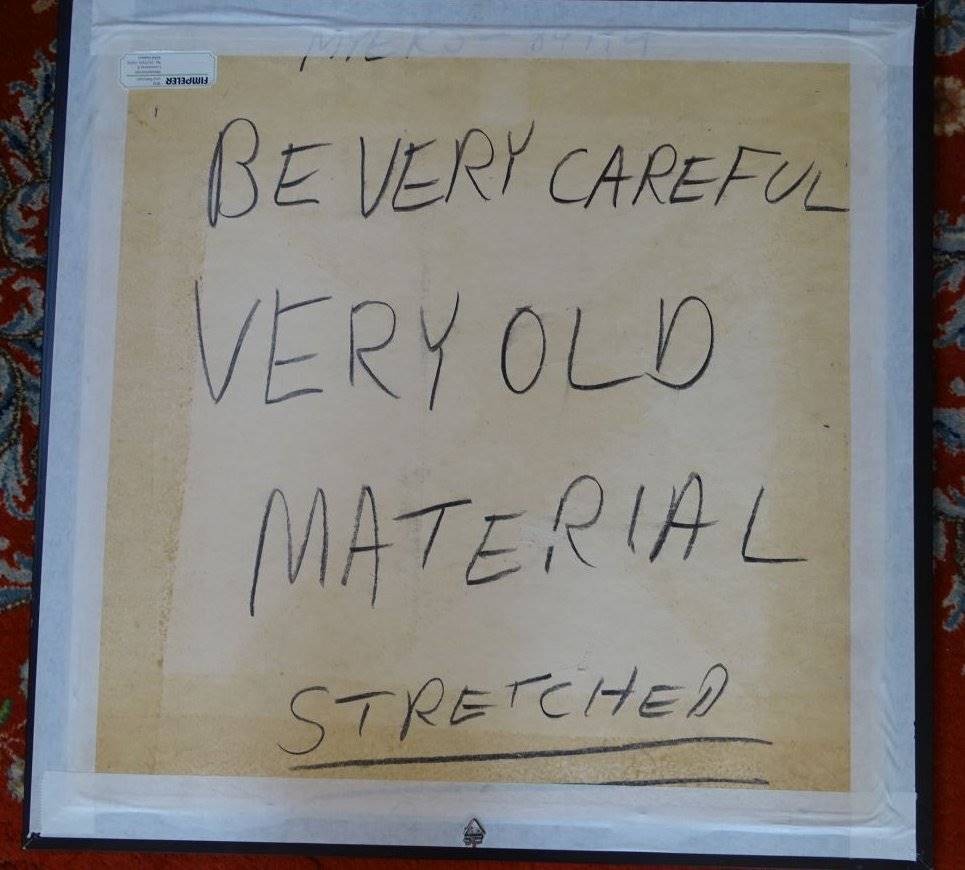 BE VERY CAREFUL
VERY OLD
MATERIAL
STRETCHED
FIMPELER